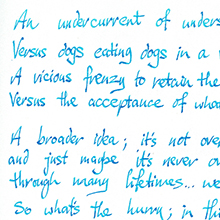 An undercurrent of unders
Versus dogs eating dogs in a
A vicious frenzy to retain the
Versus the acceptance of what
A broader idea; it's not over
and just maybe it's never ov
through many lifetimes... we
So what's the hurry; in thi